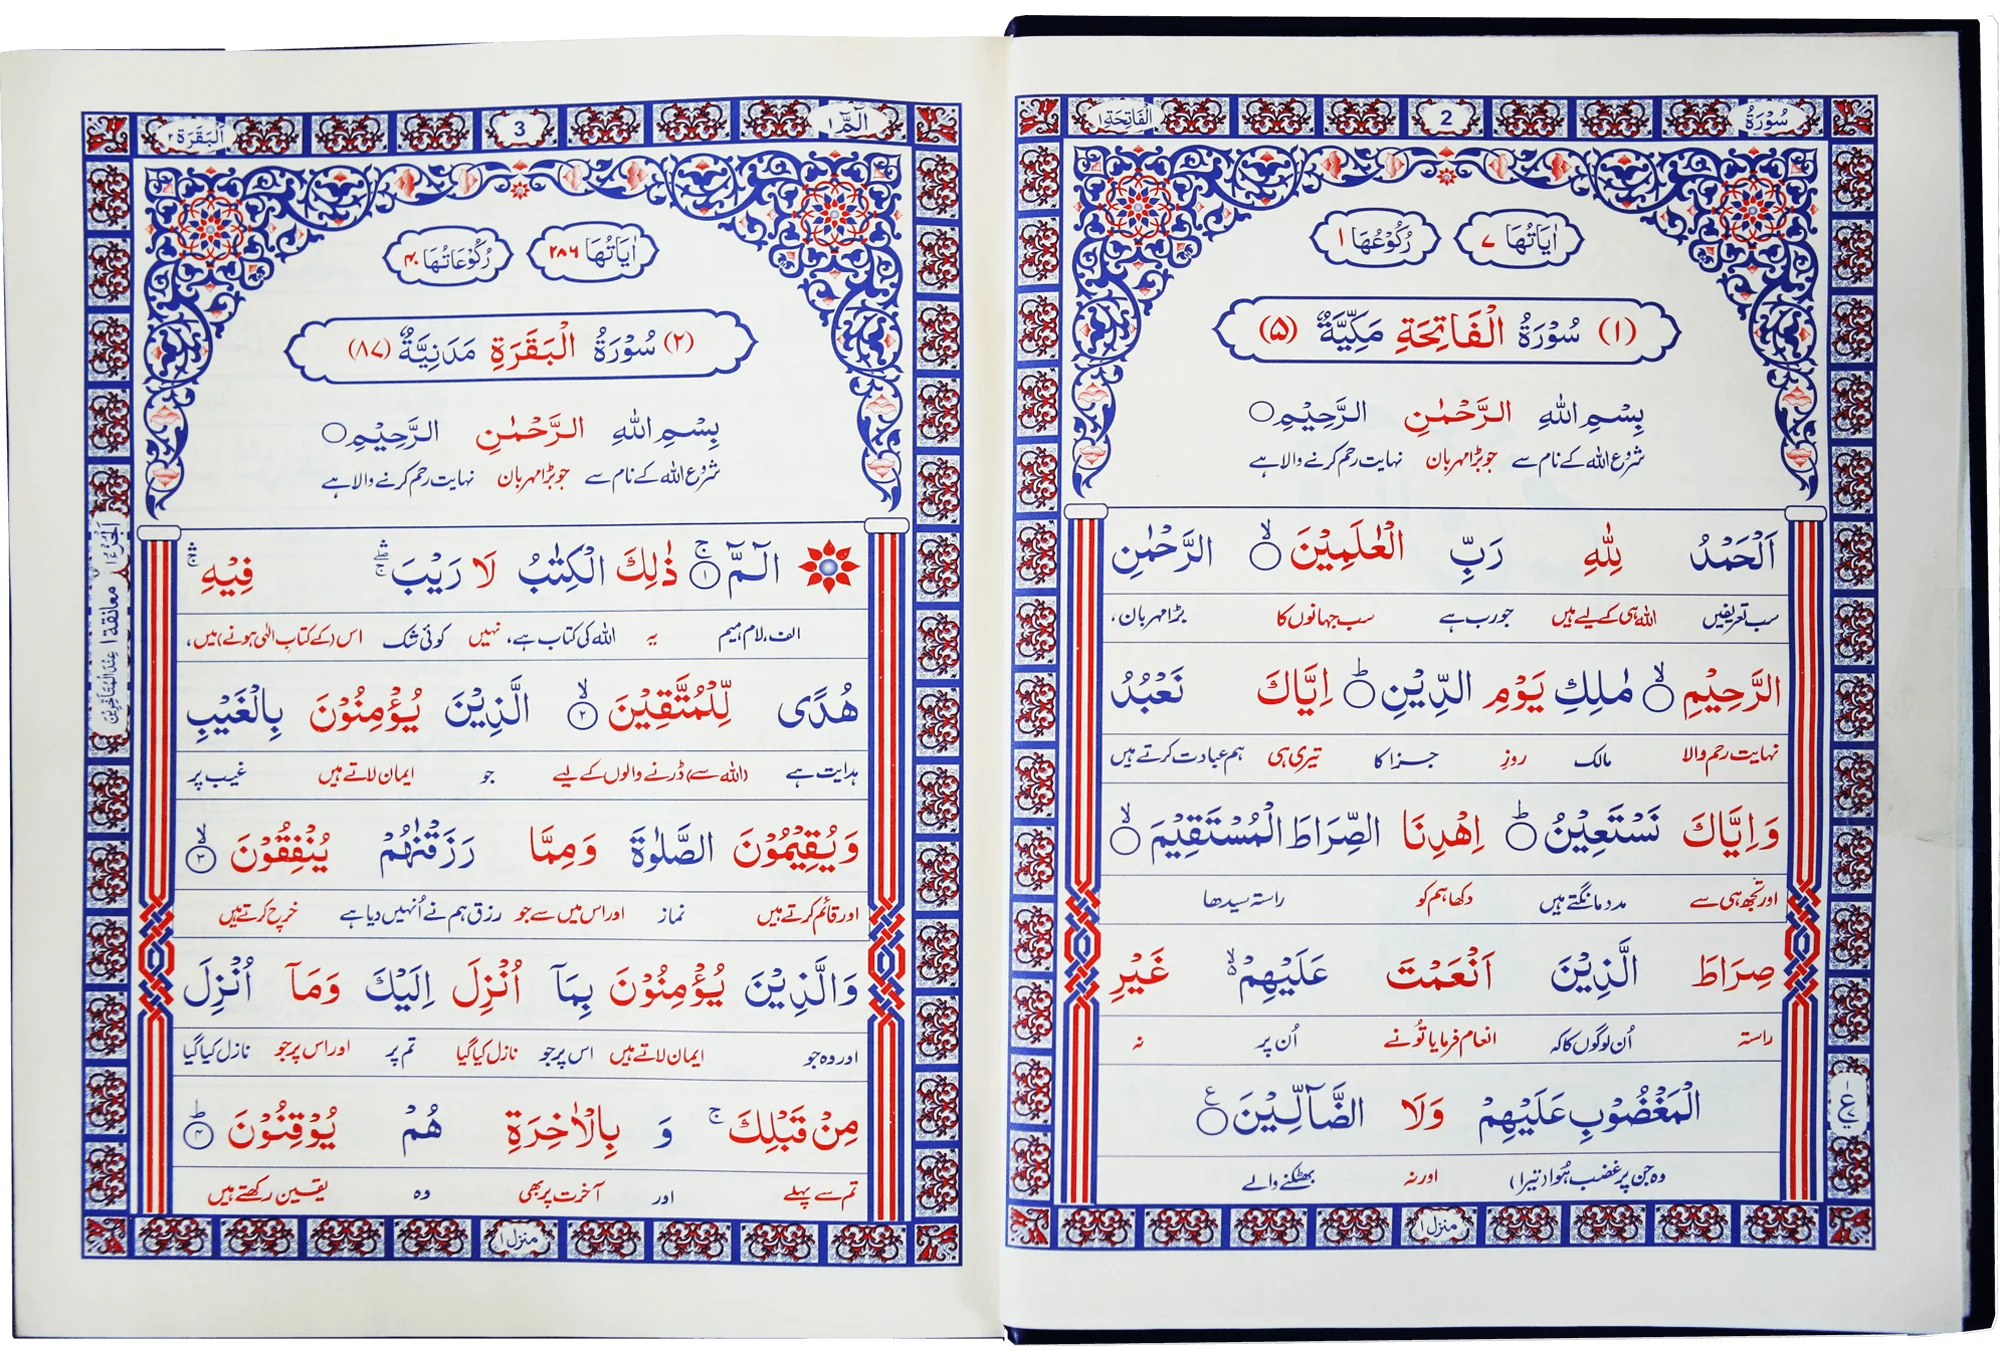 سُوْرَةُ 2 اَلْفَاتِحَة ١
اٰيَاتُهَا ٧ رُكُوْعُهَا ١
(١) سُوْرَةُ الْفَاتِحَةِ مَكِّيَّةٌ (٥)
بِسْمِ اللّٰهِ الرَّحْمٰنِ الرَّحِيْمِ ○
شروع اللہ کے نام سے جو بڑا مہربان نہایت رحم کرنے والا ہے
اَلْحَمْدُ لِلّٰهِ رَبِّ الْعٰلَمِيْنَ ○ۙ الرَّحْمٰنِ
سب تعریفیں اللہ ہی کے لیے ہیں جو رب ہے سب جہانوں کا بڑا مہربان،
الرَّحِيْمِ ○ۙ مٰلِكِ يَوْمِ الدِّيْنِ ○ؕ اِيَّاكَ نَعْبُدُ
نہایت رحم والا مالک روزِ جزا کا تیری ہی ہم عبادت کرتے ہیں
وَاِيَّاكَ نَسْتَعِيْنُ ○ؕ اِهْدِنَا الصِّرَاطَ الْمُسْتَقِيْمَ ○ۙ
اور تجھ ہی سے مدد مانگتے ہیں دکھا ہم کو راستہ سیدھا
صِرَاطَ الَّذِيْنَ اَنْعَمْتَ عَلَيْهِمْ ۙ۬ غَيْرِ
راستہ اُن لوگوں کا کہ انعام فرمایا تُو نے اُن پر نہ
الْمَغْضُوْبِ عَلَيْهِمْ وَلَا الضَّآلِّيْنَ ○ۧ
وہ جن پر غضب ہُوا (تیرا) اور نہ بھٹکنے والے
منزل ١
الٓمّٓ ١ 3 اَلْبَقَرَة ٢
اٰيَاتُهَا ٢٨٦ رُكُوْعَاتُهَا ٤٠
(٢) سُوْرَةُ الْبَقَرَةِ مَدَنِيَّةٌ (٨٧)
بِسْمِ اللّٰهِ الرَّحْمٰنِ الرَّحِيْمِ ○
شروع اللہ کے نام سے جو بڑا مہربان نہایت رحم کرنے والا ہے
الٓمّٓ ۚ ١ ذٰلِكَ الْكِتٰبُ لَا رَيْبَ ۛۖۚ فِيْهِ ۛۚ
الف، لام، میم یہ اللہ کی کتاب ہے، نہیں کوئی شک اس (کے کتابِ الٰہی ہونے) میں،
هُدًى لِّلْمُتَّقِيْنَ ۙ ٢ الَّذِيْنَ يُؤْمِنُوْنَ بِالْغَيْبِ
ہدایت ہے (اللہ سے) ڈرنے والوں کے لیے جو ایمان لاتے ہیں غیب پر
وَيُقِيْمُوْنَ الصَّلٰوةَ وَمِمَّا رَزَقْنٰهُمْ يُنْفِقُوْنَ ۙ ٣
اور قائم کرتے ہیں نماز اور اس میں سے جو رزق ہم نے اُنہیں دیا ہے خرچ کرتے ہیں
وَالَّذِيْنَ يُؤْمِنُوْنَ بِمَآ اُنْزِلَ اِلَيْكَ وَمَآ اُنْزِلَ
اور وہ جو ایمان لاتے ہیں اس پر جو نازل کیا گیا تم پر اور اس پر جو نازل کیا گیا
مِنْ قَبْلِكَ ۚ وَ بِالْاٰخِرَةِ هُمْ يُوْقِنُوْنَ ؕ ٤
تم سے پہلے اور آخرت پر بھی وہ یقین رکھتے ہیں
منزل ١
معانقة ١ عِنْدَ الْمُتَأَخِّرِيْن